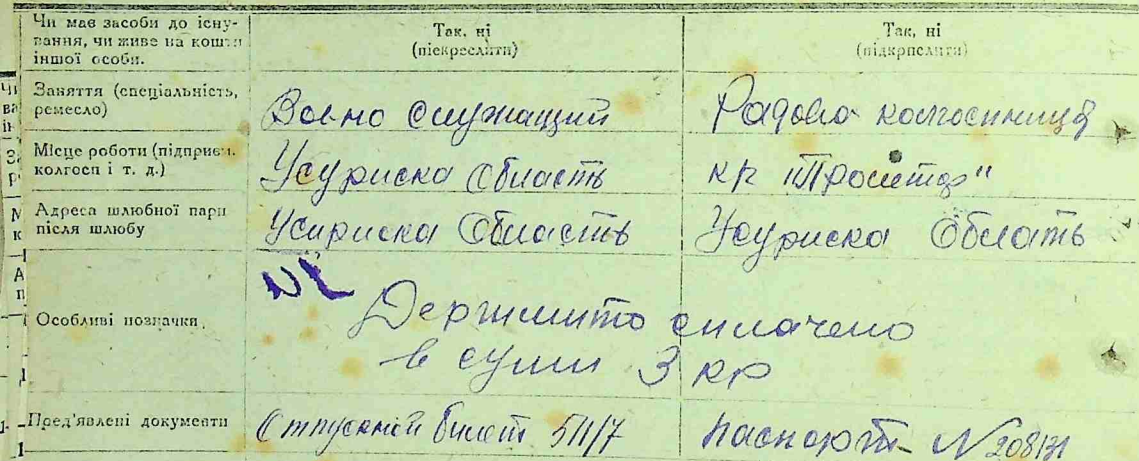 Чи має засоби до існу-
вання, чи живе на кошти
іншої особи.
Так, ні
(підкреслити)
Так, ні
(підкреслити)
Заняття (спеціальність,
ремесло)
Воєно служащий
Радова колгосниця
Місце роботи (підприєм.
колгосп і т. д.)
Усуриска Область
Адреса шлюбної пари
після шлюбу
Усуриска Область
Усуриска Облать
Особливі позначки
Держмито сплачено
в суми 3 кр
Пред'явлені документи
Отпускной билет 511/7
паспорт N 208131